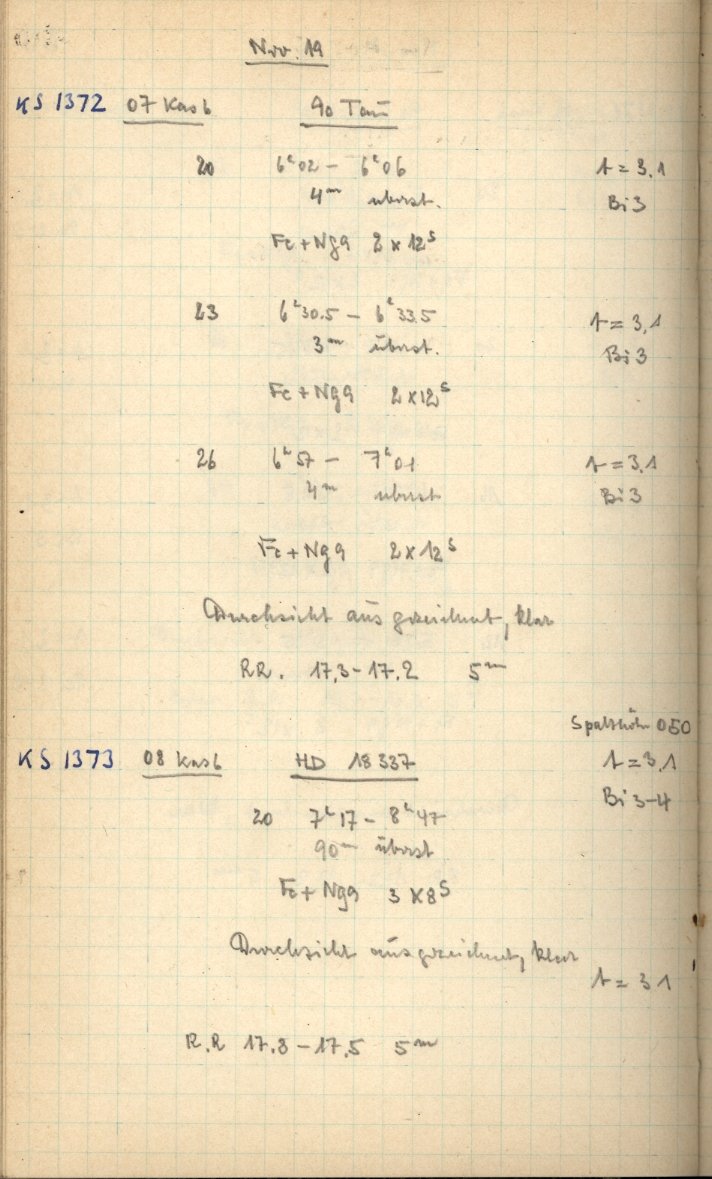 Nov. 19
KS 1372 07 Kas b 90 Tau
20 6ʰ02 – 6ʰ06 t = 3.1
4ᵐ überst. Bi 3
Fe + Ng9 2 x 12ˢ
23 6ʰ30.5 – 6ʰ33.5 t = 3,1
3ᵐ überst. Bi 3
Fe + Ng9 2 x 12ˢ
26 6ʰ57 – 7ʰ01 t = 3.1
4ᵐ überst Bi 3
Fe + Ng9 2 x 12ˢ
Durchsicht ausgezeichnet, klar
RR. 17,3 – 17.2 5ᵐ
Spalthöhe 050
KS 1373 08 Kas b HD 18 337 t = 3,1
Bi 3-4
20 7ʰ17 – 8ʰ47
90ᵐ überst
Fe + Ng9 3 x 8ˢ
Durchsicht ausgezeichnet, klar
t = 3 1
R.R 17.3 – 17,5 5ᵐ